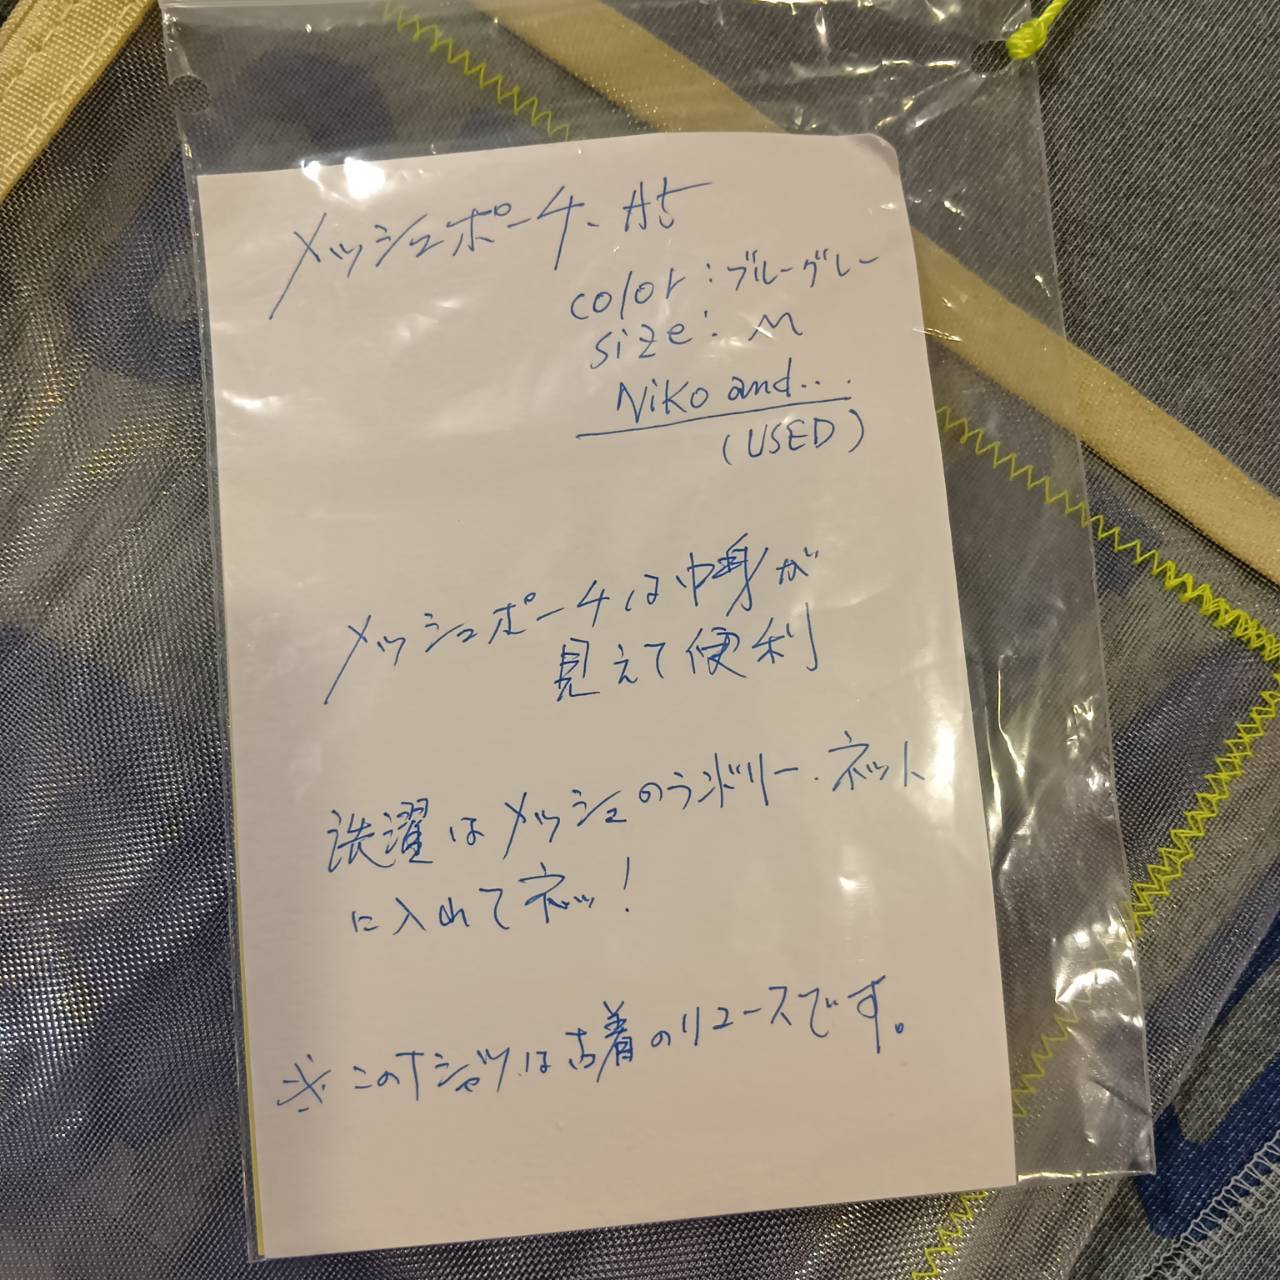 メッシュポーチ、付
color:ブルーグレー
size:M
Niko and...
(USED)
メッシュポーチは中身が
見えて便利
洗濯はメッシュのランドリー.ネット
に入れてネッ!
※このTシャツは古着のリユースです。